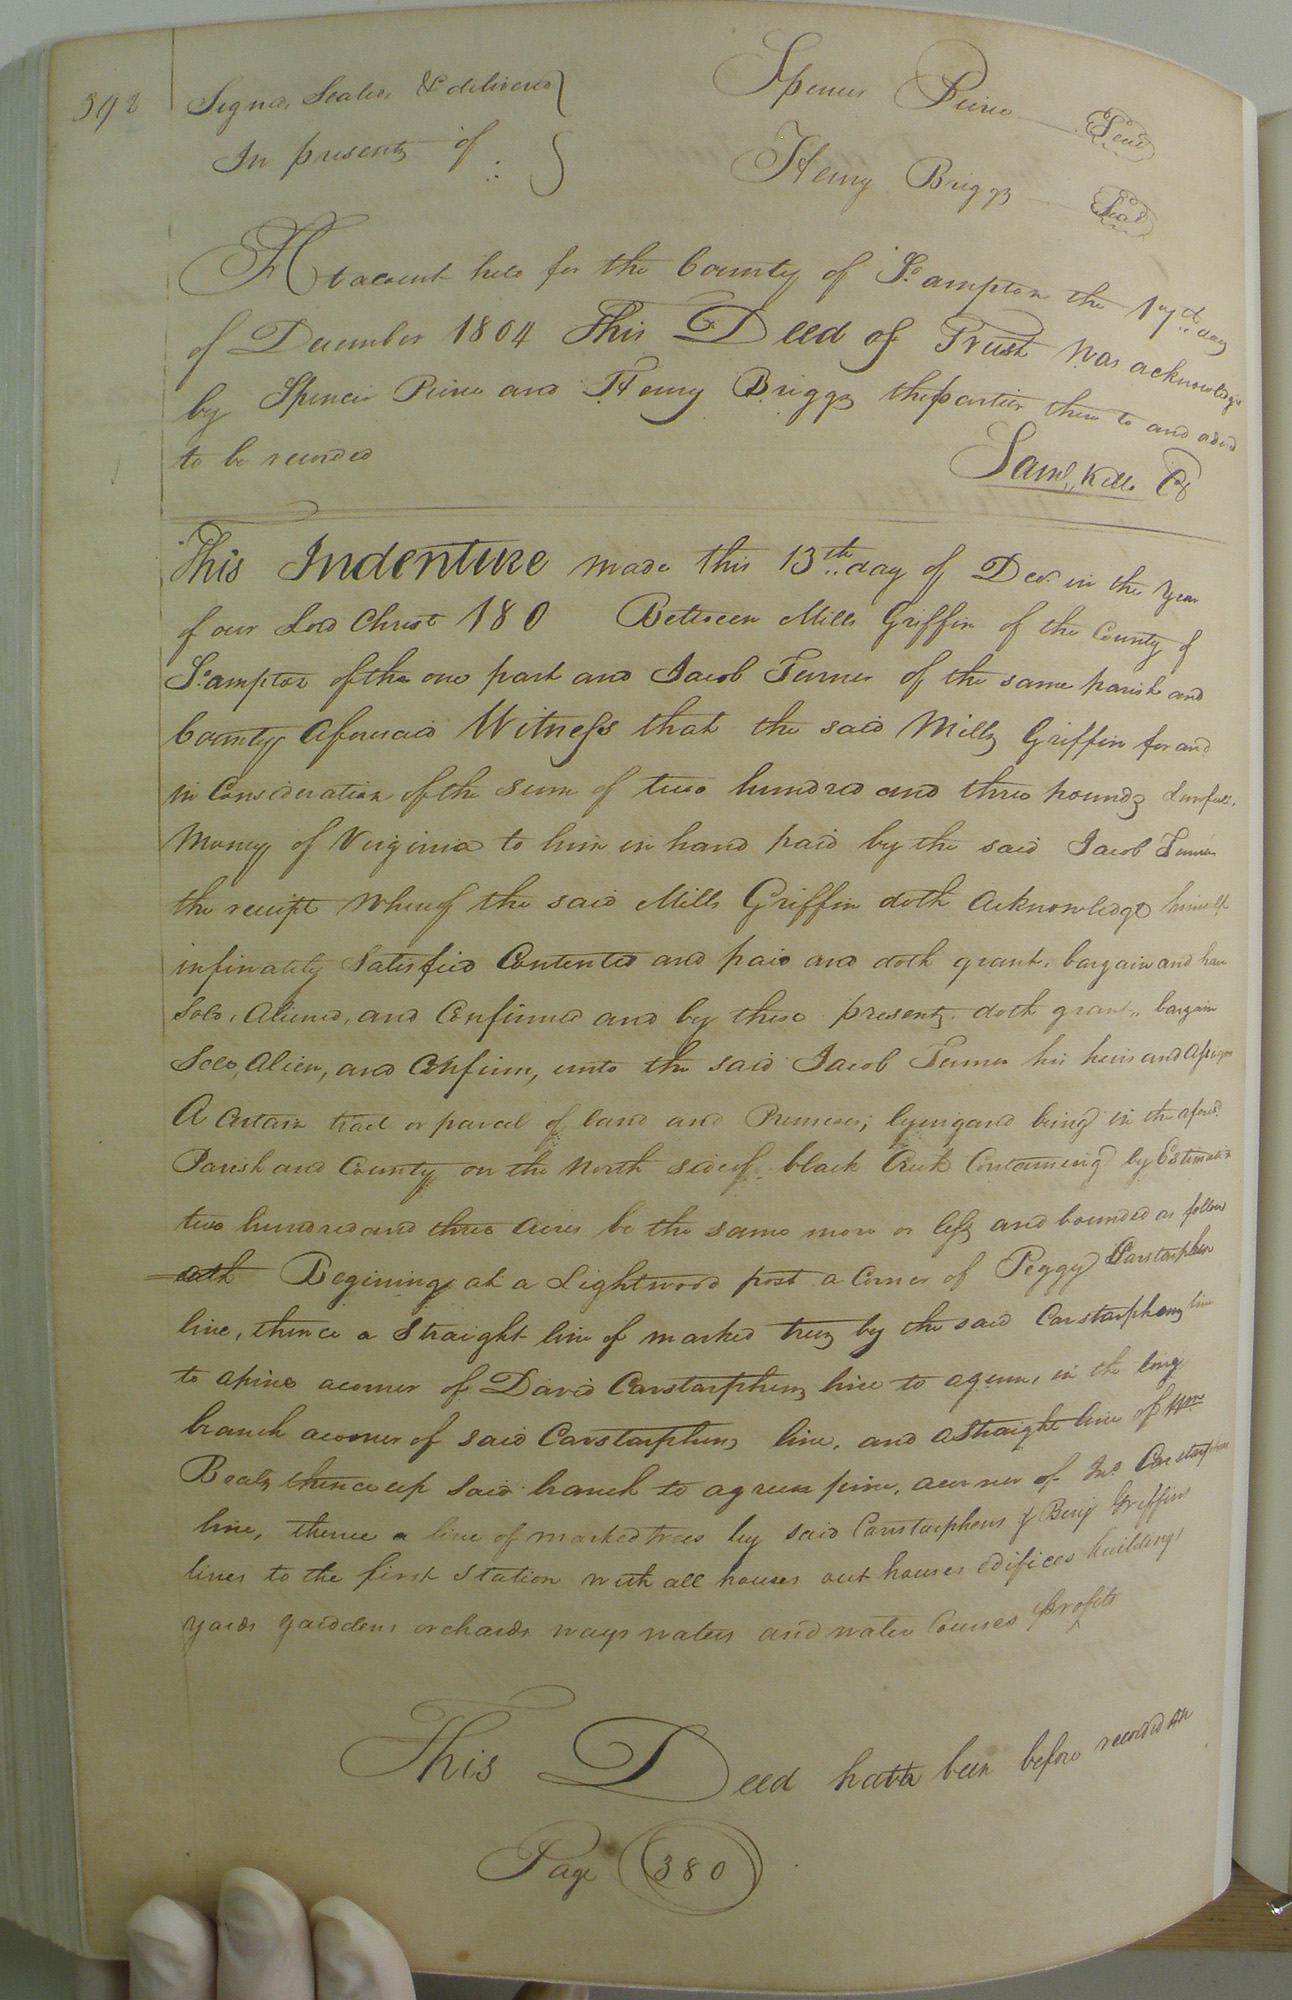 392
Signd, Sealed, & delivered
In presents of
Spencer Peirce Seal
Henry Briggs Seal
At a court held for the County of So.ampton the 17th day
of December 1804 This Deed of Trust was acknowledgd
by Spencer Peirce and Henry Briggs the parties there to and ordd
to be recorded
Saml. Kello Ck
This Indenture made this 13th day of Decr. in the Year
of our Lord Christ 180 Between Mills Griffin of the County of
So.ampton of the one part and Jacob Turner of the same parish and
County Aforesaid Witness that the said Mills Griffin for and
in Consideration of the sum of two hundred and three pounds Lawfull
Money of Virginia to him in hand paid by the said Jacob Turner
the receipt whereof the said Mills Griffin doth Acknowledge himself
infinately Satisfied Contented and paid and doth grant, bargain and have
Sold, Aliened, and Confirmed and by these presents doth grant, bargain
Sell, Alien, and Confirm, unto the said Jacob Turner his heirs and Assigns
A Certain tract or parcel of land and Premises; lyeing and being in the aforesd.
Parish and County on the North side of black Creek Containeing by Estimation
two hundred and three acres be the same more or less and bounded as follow
eth Begining at a Lightwood post a Corner of Peggy Carstarphen
line, thence a Straight line of marked trees by the said Carstarphens line
to a pine a corner of David Carstarphens line to a gum, in the long
branch a corner of said Carstarphens line, and a Straight line of Wm
Beals, thence up said branch to a green pine, a corner of Jno. Carstarphens
line, thence a line of marked trees by said Carstarphens & Benj Griffins
lines to the first Station with all houses out houses edifices buildings
yards gardens orchards ways waters and water Courses profits
This Deed hath been before recorded in
Page 380